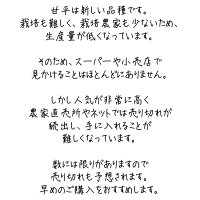 甘平は新しい品種です。
栽培も難しく、栽培農家も少ないため、
生産量が低くなっています。
そのため、スーパーや小売店で
見かけることはほとんどにありません。
しかし人気が非常に高く
農家直売所やネットでは売り切れが
続出し、手に入れることが
難しくなっています。
数には限りがありますので
売り切れも予想されます。
早めのご購入をおすすめします。